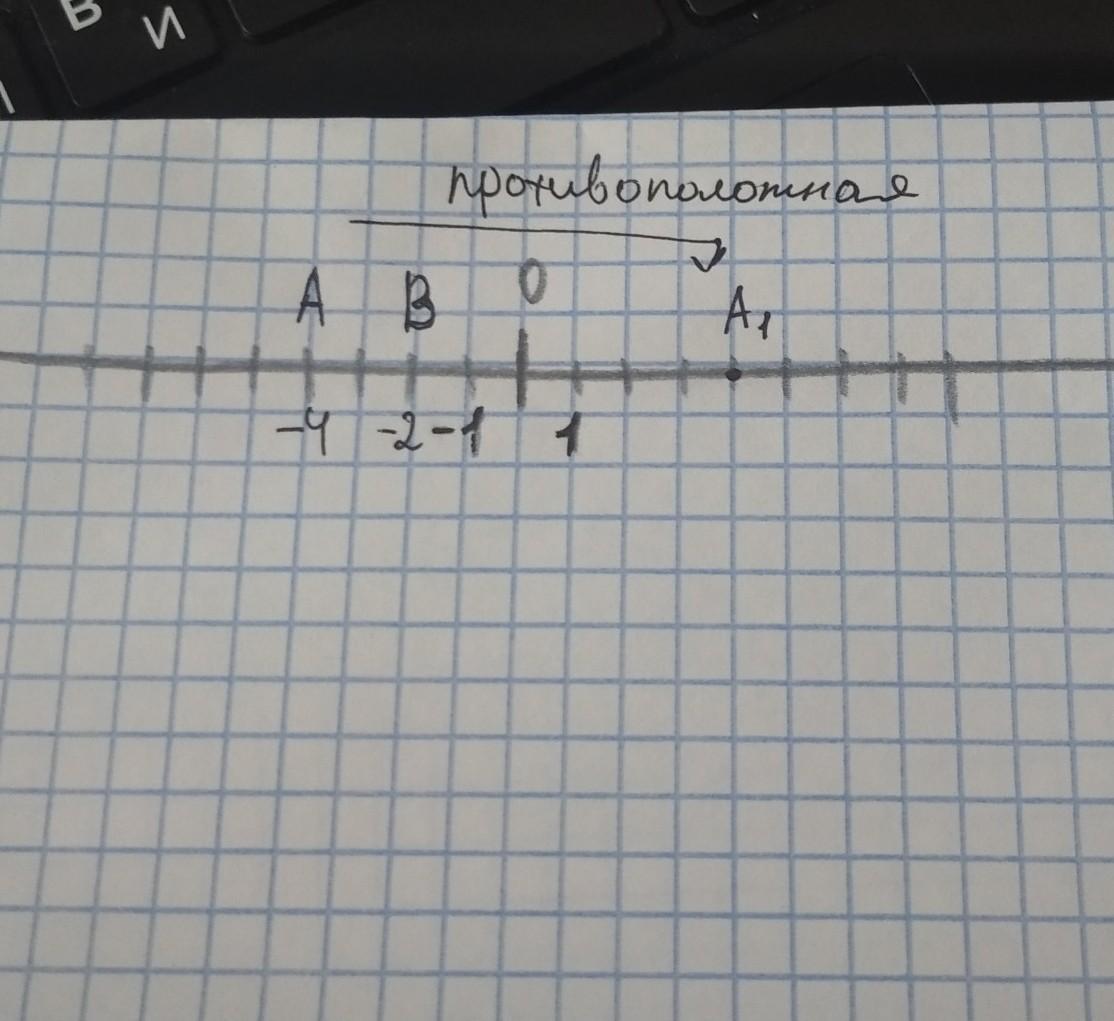 В И
противоположная
A B 0 A₁
-4 -2 -1 1